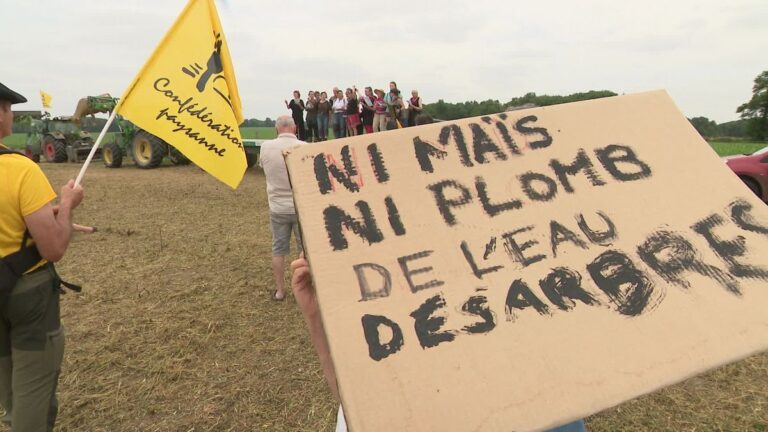 Confédération
paysanne
NI MAÏS
NI PLOMB
DE L'EAU
DES ARBRES